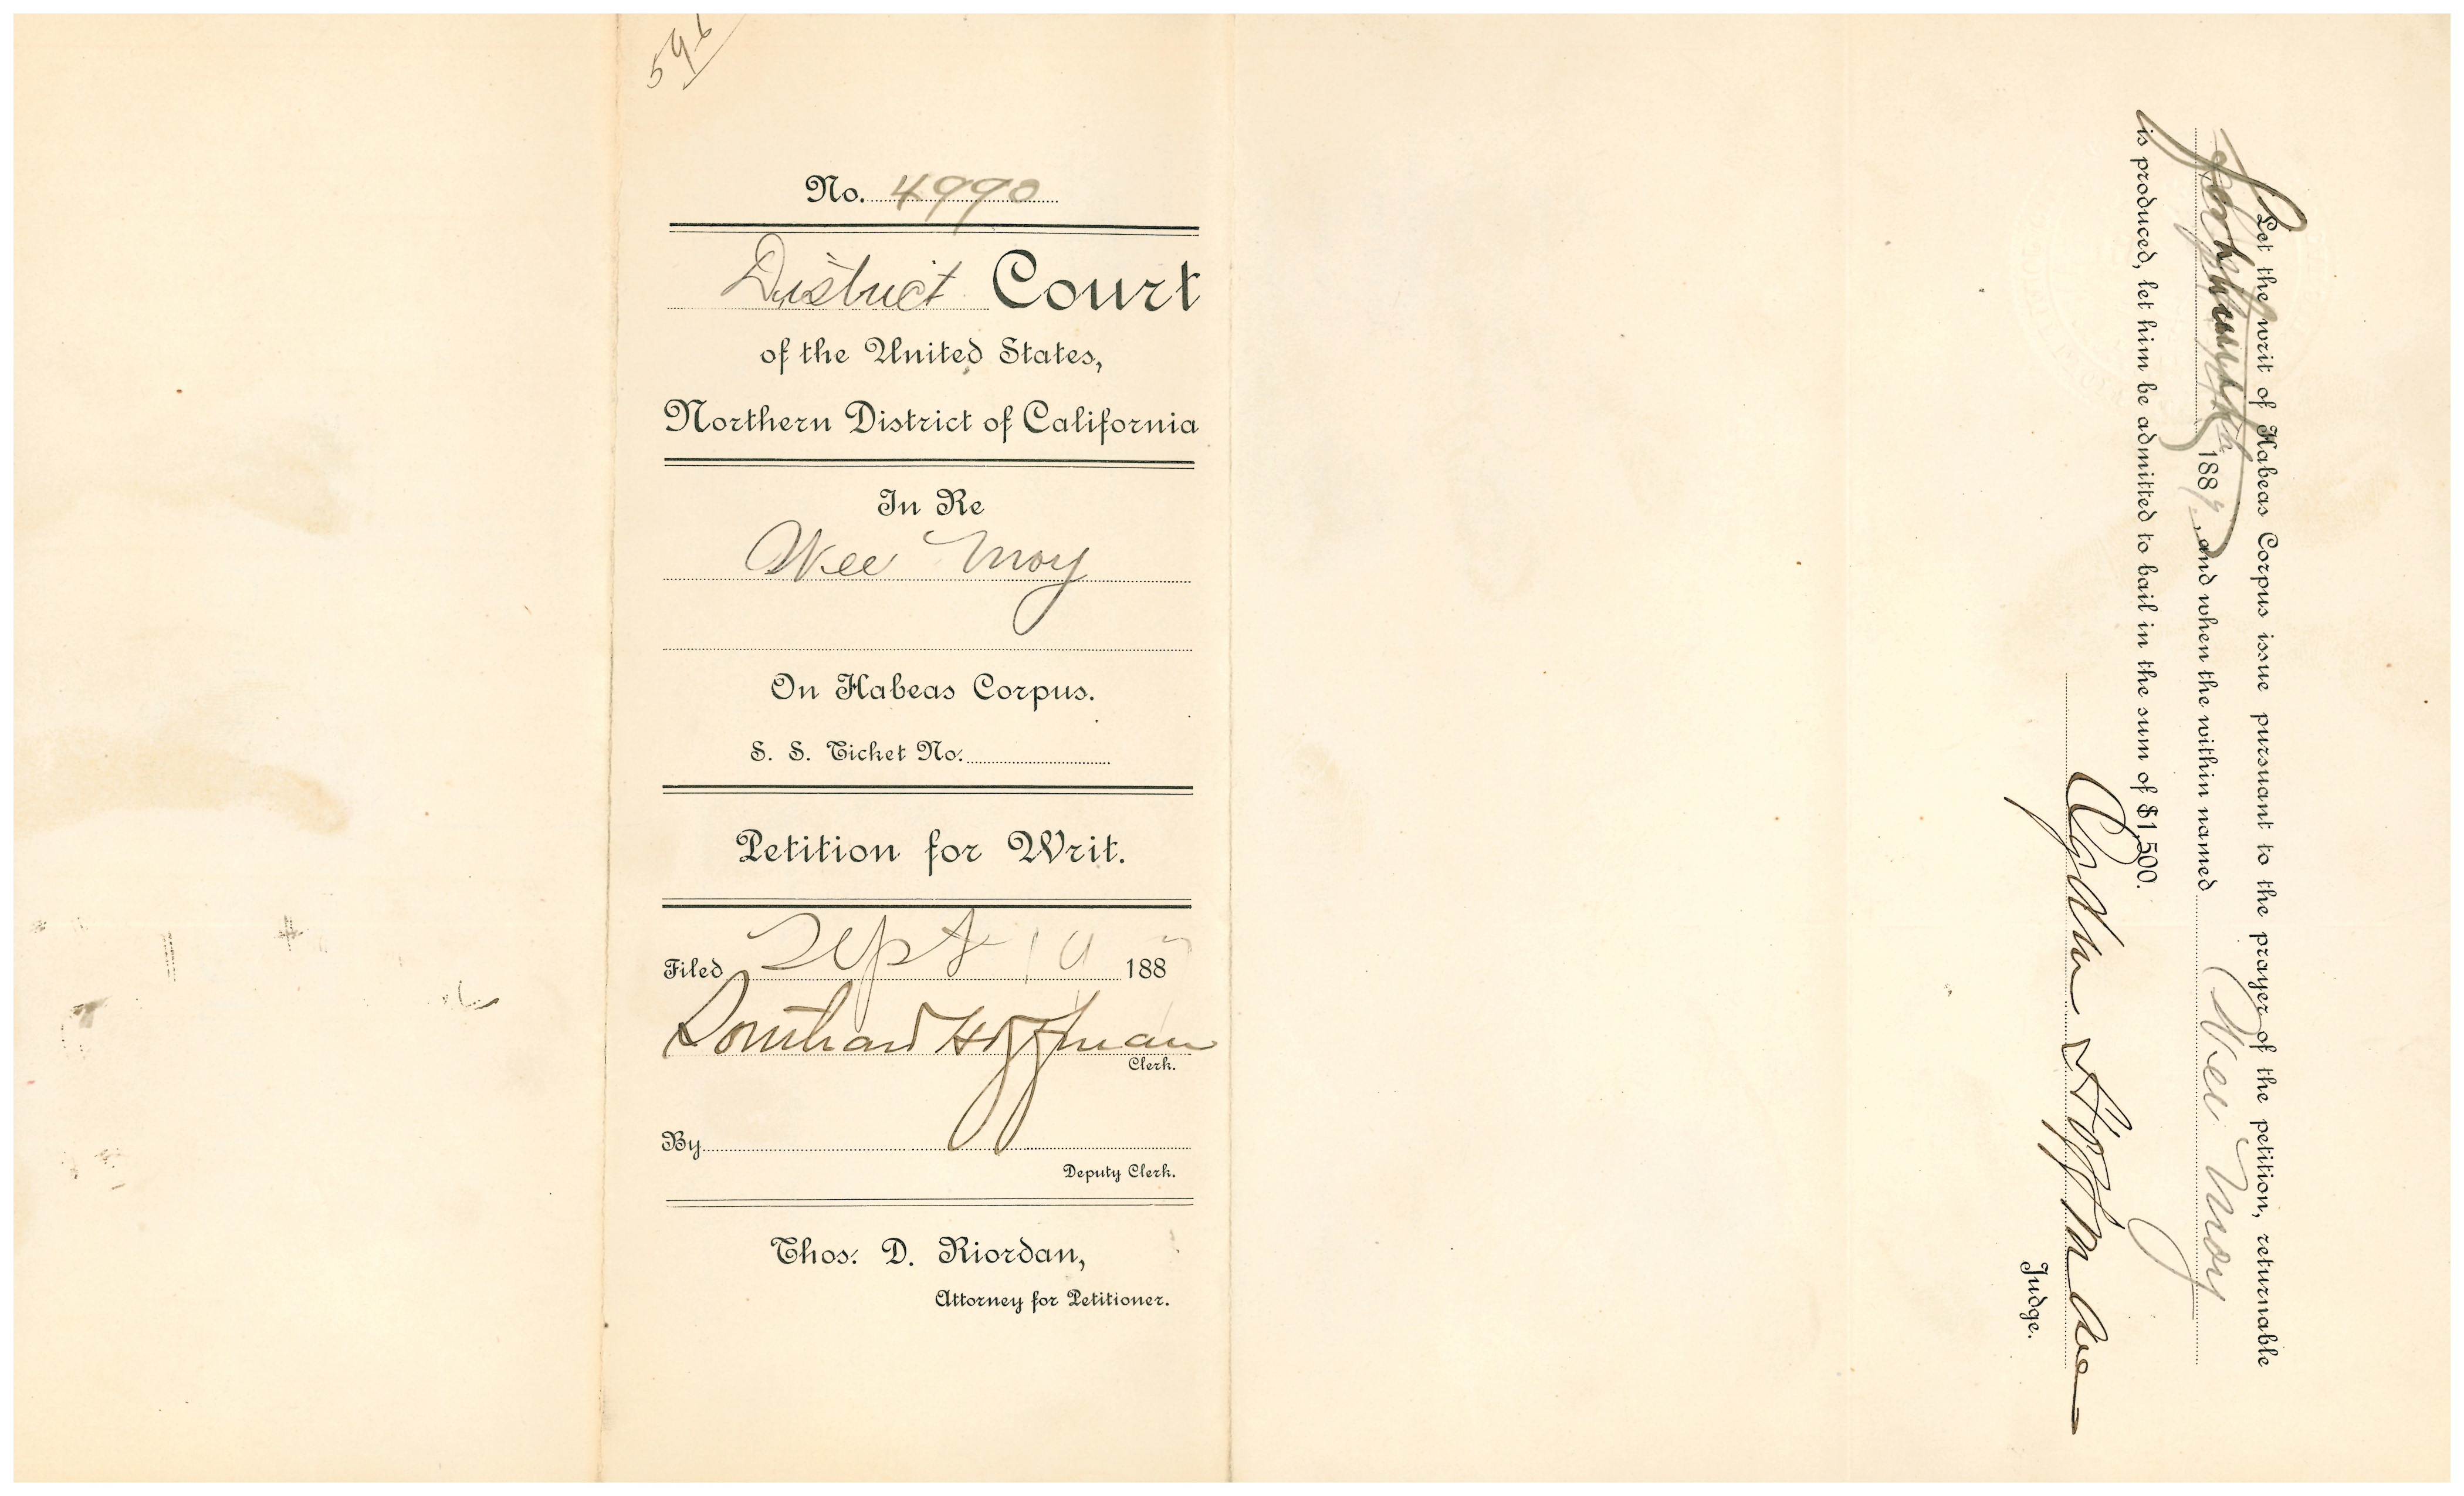 596
No. 4990
District Court
of the United States,
Northern District of California
In Re
Wee Moy
On Habeas Corpus.
S. S. Ticket No.
Petition for Writ.
Filed Sept 188
Southard Hoffman
Clerk.
By
Deputy Clerk.
Thos. D. Riordan,
Attorney for Petitioner.
Let the writ of Habeas Corpus issue pursuant to the prayer of the petition, returnable
Forthwith 188 and when the within named Wee Moy
is produced, let him be admitted to bail in the sum of $1,500.
Ogden Hoffman
Judge.